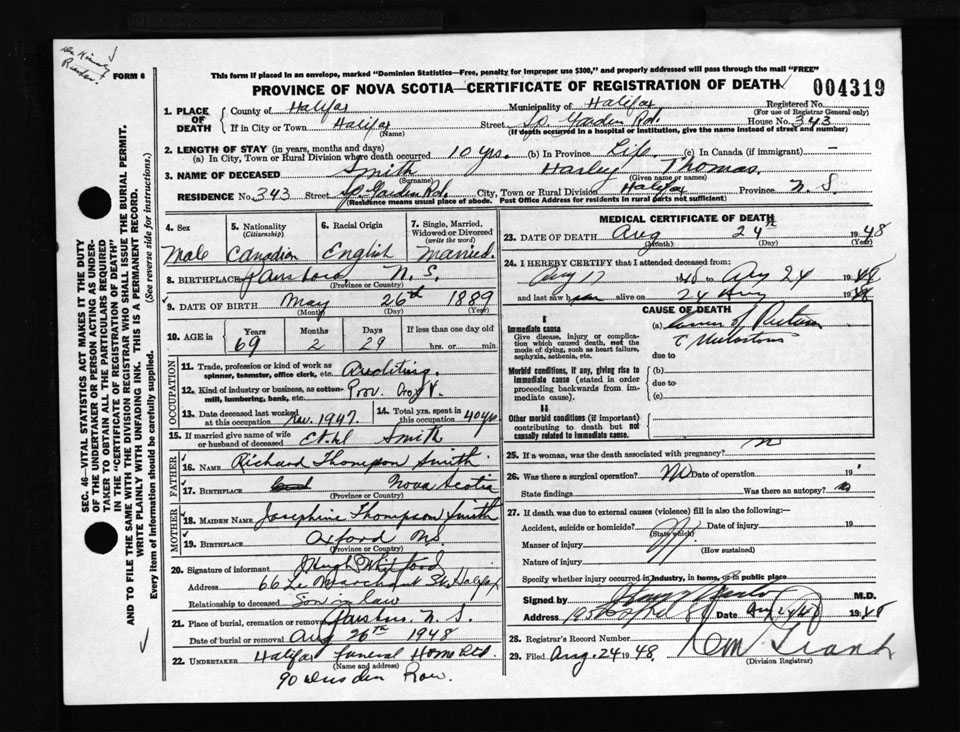 FORM 6
This form if placed in an envelope, marked "Dominion Statistics—Free, penalty for improper use $300," and properly addressed will pass through the mail "FREE"
PROVINCE OF NOVA SCOTIA—CERTIFICATE OF REGISTRATION OF DEATH 004319
1. PLACE OF DEATH County of Halifax Municipality of Halifax Registered No.
(For use of Registrar General only)
If in City or Town Halifax Street So. Garden Rd. House No. 343
(Name) (If death occurred in a hospital or institution, give the name instead of street and number)
2. LENGTH OF STAY (in years, months and days)
(a) In City, Town or Rural Division where death occurred 10 yrs. (b) In Province Life (c) In Canada (if immigrant) —
3. NAME OF DECEASED Smith Harley Thomas
(Surname) (Given name or names)
RESIDENCE No. 343 Street So. Garden Rd. City, Town or Rural Division Halifax Province N. S.
(Residence means usual place of abode. Post Office Address for residents in rural parts not sufficient)
4. Sex Male
5. Nationality (Citizenship) Canadian
6. Racial Origin English
7. Single, Married, Widowed or Divorced (write the word) Married.
8. BIRTHPLACE Parrsboro N. S.
(Province or Country)
9. DATE OF BIRTH May 26th 1889
(Month) (Day) (Year)
10. AGE in Years Months Days If less than one day old
69 2 29 hrs. or min.
OCCUPATION
11. Trade, profession or kind of work as spinner, teamster, office clerk, etc. Auditing.
12. Kind of industry or business, as cotton-mill, lumbering, bank, etc. Prov. Gov't.
13. Date deceased last worked at this occupation 1947. 14. Total yrs. spent in this occupation 40 yrs.
15. If married give name of wife or husband of deceased Ethel Smith
FATHER
16. NAME Richard Thompson Smith
17. BIRTHPLACE Nova Scotia
(Province or Country)
MOTHER
18. MAIDEN NAME Josephine Thompson Smith
19. BIRTHPLACE Oxford N.S.
(Province or Country)
20. Signature of informant Hugh
Address 66 Le Marchant St, Halifax
Relationship to deceased Son in law
21. Place of burial, cremation or removal N. S.
Date of burial or removal Aug 26th 1948
22. UNDERTAKER Halifax Funeral Home Ltd.
(Name and address)
90 Row.
MEDICAL CERTIFICATE OF DEATH
23. DATE OF DEATH Aug 24th 1948
(Month) (Day) (Year)
24. I HEREBY CERTIFY that I attended deceased from:
Aug 17 1948 to Aug 24 1948
and last saw h alive on 24 Aug 1948
CAUSE OF DEATH
I
Immediate cause
Give disease, injury or complication which caused death, not the mode of dying, such as heart failure, asphyxia, asthenia, etc.
(a) of
due to
Morbid conditions, if any, giving rise to immediate cause (stated in order proceeding backwards from immediate cause).
(b)
due to
(c)
II
Other morbid conditions (if important) contributing to death but not causally related to immediate cause.
25. If a woman, was the death associated with pregnancy?
26. Was there a surgical operation? No Date of operation 19
State findings Was there an autopsy? No
27. If death was due to external causes (violence) fill in also the following:—
Accident, suicide or homicide? Date of injury 19
(State which)
Manner of injury
(How sustained)
Nature of injury
Specify whether injury occurred in industry, in home, or in public place
Signed by M.D.
Date Aug 24/48 1948
28. Registrar's Record Number
29. Filed Aug. 24 1948
(Division Registrar)
SEC. 46—VITAL STATISTICS ACT MAKES IT THE DUTY
OF THE UNDERTAKER OR PERSON ACTING AS UNDER-
TAKER TO OBTAIN ALL THE PARTICULARS REQUIRED
IN THE "CERTIFICATE OF REGISTRATION OF DEATH"
AND TO FILE THE SAME WITH THE DIVISION REGISTRAR WHO SHALL ISSUE THE BURIAL PERMIT.
WRITE PLAINLY WITH UNFADING INK. THIS IS A PERMANENT RECORD.
Every item of information should be carefully supplied. (See reverse side for instructions.)